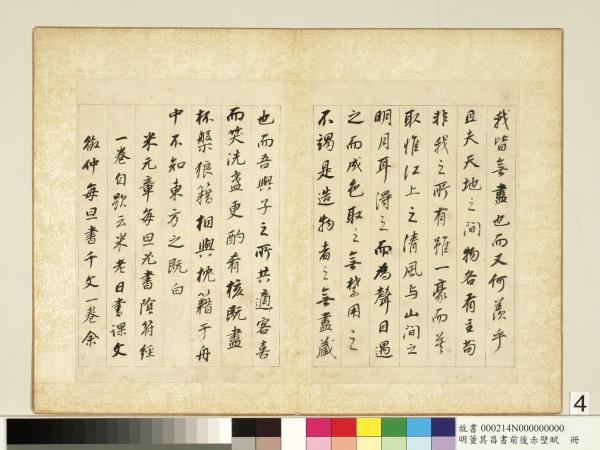 我皆無盡也而又何羨乎
且夫天地之間物各有主苟
非我之所有雖一毫而莫
取惟江上之清風与山間之
明月耳得之而為聲目遇
之而成色取之無禁用之
不竭是造物者之無盡藏
也而吾與子之所共適客喜
而笑洗盞更酌肴核既盡
杯槃狼籍相與枕籍乎舟
中不知東方之既白
米元章每旦必書陰符經
一卷自跋云米老日書課文
徵仲每旦書千文一卷余
4
故書 000214N000000000
明董其昌書前後赤壁賦 冊